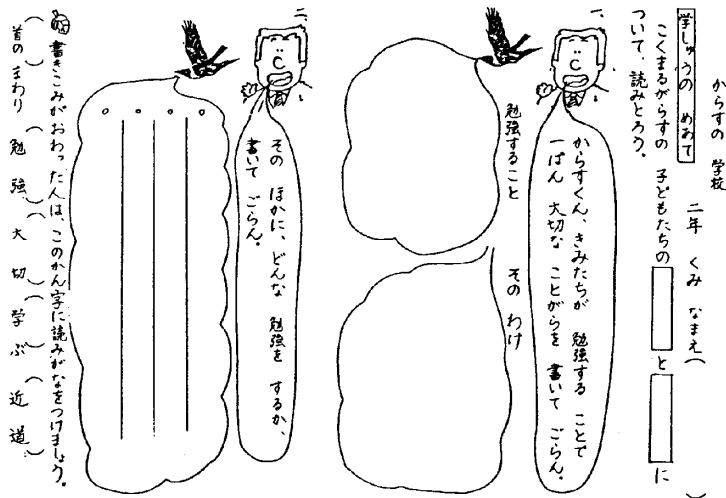 からすの 学校
二年 くみ なまえ( )
学しゅうの めあて
こくまるがらすの 子どもたちの
と
に
ついて、読みとろう。
一、
からすくん、きみたちが 勉強する ことで
一ばん 大切な ことがらを 書いて ごらん。
勉強すること
その わけ
二、
その ほかに、どんな 勉強を するか、
書いて ごらん。
書きこみがおわった人は、このかん字に読みがなをつけましょう。
首の まわり
勉強
大切
学ぶ
近道